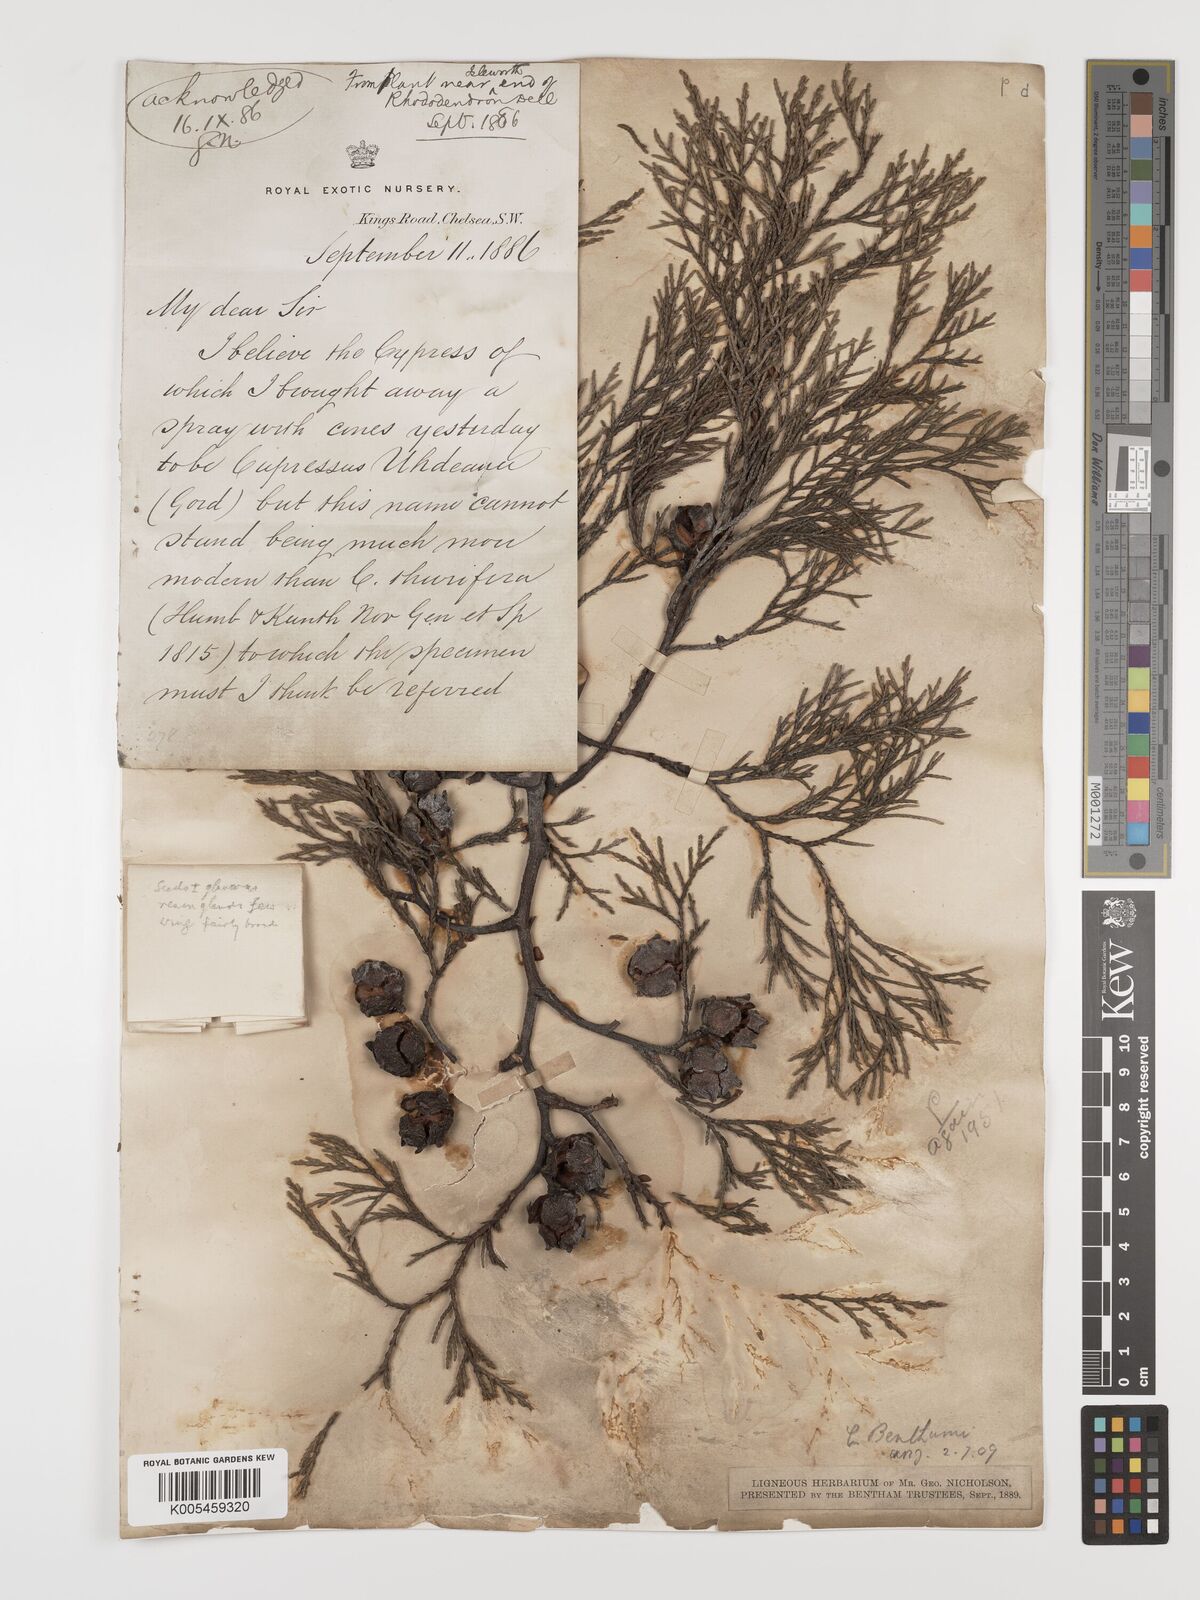 acknowledged
16. IX. 86
G.N.
Isleworth
From plant near end of
Rhododendron Dell
Sept. 1886
ROYAL EXOTIC NURSERY.
Kings Road, Chelsea, S.W.
September 11.. 1886
My dear Sir
I believe the Cypress of
which I brought away a
spray with cones yesterday
to be Cupressus Uhdeana
(Gord) but this name cannot
stand being much more
modern than C. thurifera
(Humb & Kunth Nov Gen et Sp
1815) to which the specimen
must I think be referred
Seeds ± glaucous
resin glands few
wing fairly broad
P d
inches
centimeters
Don Williams
M001272
Royal Botanic Gardens
Kew
copyright reserved
0 1 2 3 4 5 6 7 8 9 10
cm
1951
C. Benthami
2.7.09
LIGNEOUS HERBARIUM OF MR. GEO. NICHOLSON,
PRESENTED BY THE BENTHAM TRUSTEES, SEPT., 1889.
ROYAL BOTANIC GARDENS KEW
K005459320